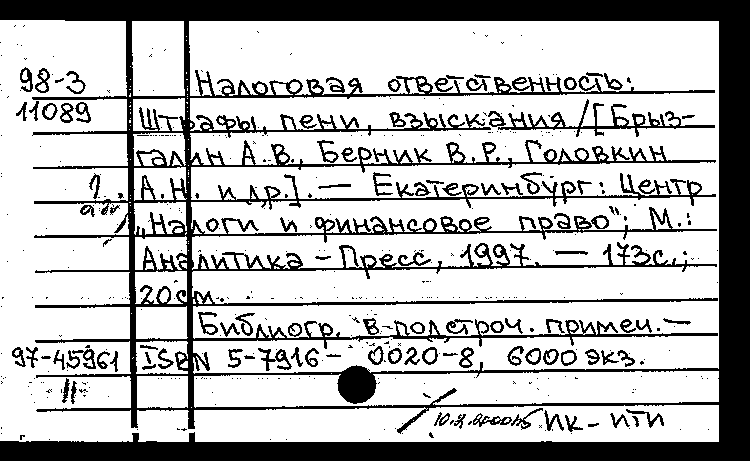 98-3 Налоговая ответственность:
11089 Штрафы, пени, взыскания / [Брыз-
галин А.В., Берник В.Р., Головкин
А.Н. и др.]. — Екатеринбург: Центр
„Налоги и финансовое право"; М.:
Аналитика-Пресс, 1997. — 173с.;
20см.
Библиогр. в подстроч. примеч. —
97-45961 ISBN 5-7916-0020-8, 6000 экз.
II
ИК - ИТИ